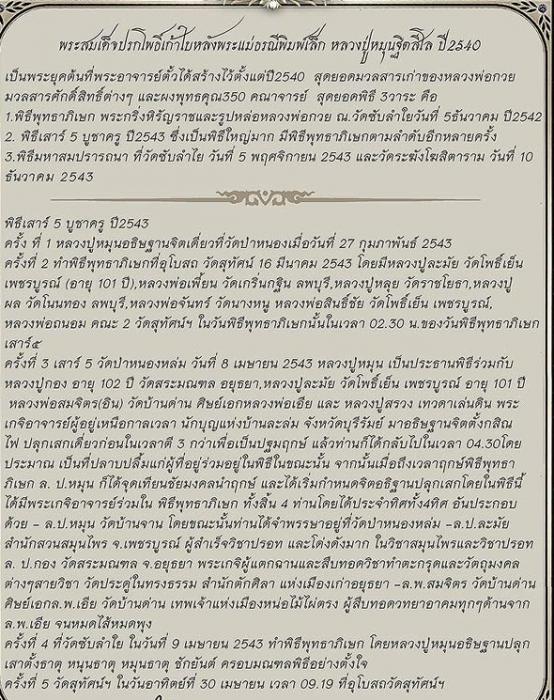 พระสมเด็จปรกโพธิ์เก้าใบหลังพระแม่ธรณีพิมพ์เล็ก หลวงปู่หมุนฐิตสีโล ปี2540
เป็นพระยุคต้นที่พระอาจารย์ตั้วได้สร้างไว้ตั้งแต่ปี2540 สุดยอดมวลสารเก่าของหลวงพ่อกวย
มวลสารศักดิ์สิทธิ์ต่างๆ และผงพุทธคุณ350 คณาจารย์ สุดยอดพิธี 3วาระ คือ
1.พิธีพุทธาภิเษก พระกริ่งหิรัญราชและรูปหล่อหลวงพ่อกวย ณ.วัดซับลำใยวันที่ 5ธันวาคม ปี2542
2. พิธีเสาร์ 5 บูชาครู ปี2543 ซึ่งเป็นพิธีใหญ่มาก มีพิธีพุทธาภิเษกตามลำดับอีกหลายครั้ง
3.พิธีมหาสมปรารถนา ที่วัดซับลำไย วันที่ 5 พฤศจิกายน 2543 และวัดระฆังโฆสิตาราม วันที่ 10
ธันวาคม 2543
พิธีเสาร์ 5 บูชาครู ปี2543
ครั้ง ที่ 1 หลวงปู่หมุนอธิษฐานจิตเดี่ยวที่วัดป่าหนองเมื่อวันที่ 27 กุมภาพันธ์ 2543
ครั้งที่ 2 ทำพิธีพุทธาภิเษกที่อุโบสถ วัดสุทัศน์ 16 มีนาคม 2543 โดยมีหลวงปู่ละมัย วัดโพธิ์เย็น
เพชรบูรณ์ (อายุ 101 ปี),หลวงพ่อเพี้ยน วัดเกริ่นกฐิน ลพบุรี,หลวงปู่หลุย วัดราชโยธา,หลวงปู่
ผล วัดโนนทอง ลพบุรี,หลวงพ่อจันทร์ วัดนางหนู หลวงพ่อสิทธิ์ชัย วัดโพธิ์เย็น เพชรบูรณ์,
หลวงพ่อถนอม คณะ 2 วัดสุทัศน์ฯ ในวันพิธีพุทธาภิเษกนั้นในเวลา 02.30 น.ของวันพิธีพุทธาภิเษก
เสาร์๕
ครั้งที่ 3 เสาร์ 5 วัดป่าหนองหล่ม วันที่ 8 เมษายน 2543 หลวงปู่หมุน เป็นประธานพิธีร่วมกับ
หลวงปู่กอง อายุ 102 ปี วัดสระมณฑล อยุธยา,หลวงปู่ละมัย วัดโพธิ์เย็น เพชรบูรณ์ อายุ 101 ปี
หลวงพ่อสมจิตร(อิน) วัดบ้านด่าน ศิษย์เอกหลวงพ่อเอีย และ หลวงปู่สรวง เทวดาเล่นดิน พระ
เกจิอาจารย์ผู้อยู่เหนือกาลเวลา นักบุญแห่งบ้านละล่ม จังหวัดบุรีรัมย์ มาอธิษฐานจิตตั้งกสิณ
ไฟ ปลุกเสกเดี่ยวก่อนในเวลาตี 3 กว่าเพื่อเป็นปฐมฤกษ์ แล้วท่านก็ได้กลับไปในเวลา 04.30โดย
ประมาณ เป็นที่ปลาบปลื้มแก่ผู้ที่อยู่ร่วมอยู่ในพิธีในขณะนั้น จากนั้นเมื่อถึงเวลาฤกษ์พิธีพุทธา
ภิเษก ล. ป.หมุน ก็ได้จุดเทียนชัยมงคลนำฤกษ์ และได้เริ่มกำหนดจิตอธิฐานปลุกเสกโดยในพิธีนี้
ได้มีพระเกจิอาจารย์ร่วมใน พิธีพุทธาภิเษก ทั้งสิ้น 4 ท่านโดยได้ประจำทิศทั้ง4ทิศ อันประกอบ
ด้วย - ล.ป.หมุน วัดบ้านจาน โดยขณะนั้นท่านได้จำพรรษาอยู่ที่วัดป่าหนองหล่ม -ล.ป.ละมัย
สำนักสวนสมุนไพร จ.เพชรบูรณ์ ผู้สำเร็จวิชาปรอท และโด่งดังมาก ในวิชาสมุนไพรและวิชาปรอท
ล. ป.กอง วัดสระมณฑล จ.อยุธยา พระเกจิผู้แตกฉานและสืบทอดวิชาทำตะกรุดและวัตถุมงคล
ต่างๆสายวิชา วัดประดู่ในทรงธรรม สำนักตักศิลา แห่งเมืองเก่าอยุธยา -ล.พ.สมจิตร วัดบ้านด่าน
ศิษย์เอกล.พ.เอีย วัดบ้านด่าน เทพเจ้าแห่งเมืองหน่อไม้ไผ่ตรง ผู้สืบทอดวทยาอาคมทุกๆด้านจาก
ล.พ.เอีย จนหมดไส้หมดพุง
ครั้งที่ 4 ที่วัดซับลำใย ในวันที่ 9 เมษายน 2543 ทำพิธีพุทธาภิเษก โดยหลวงปู่หมุนอธิษฐานปลุก
เสาตั้งธาตุ หนุนธาตุ หมุนธาตุ ชักยันต์ ครอบมณฑลพิธีอย่างตั้งใจ
ครั้งที่ 5 วัดสุทัศน์ฯ ในวันอาทิตย์ที่ 30 เมษายน เวลา 09.19 ที่อุโบสถวัดสุทัศน์ฯ